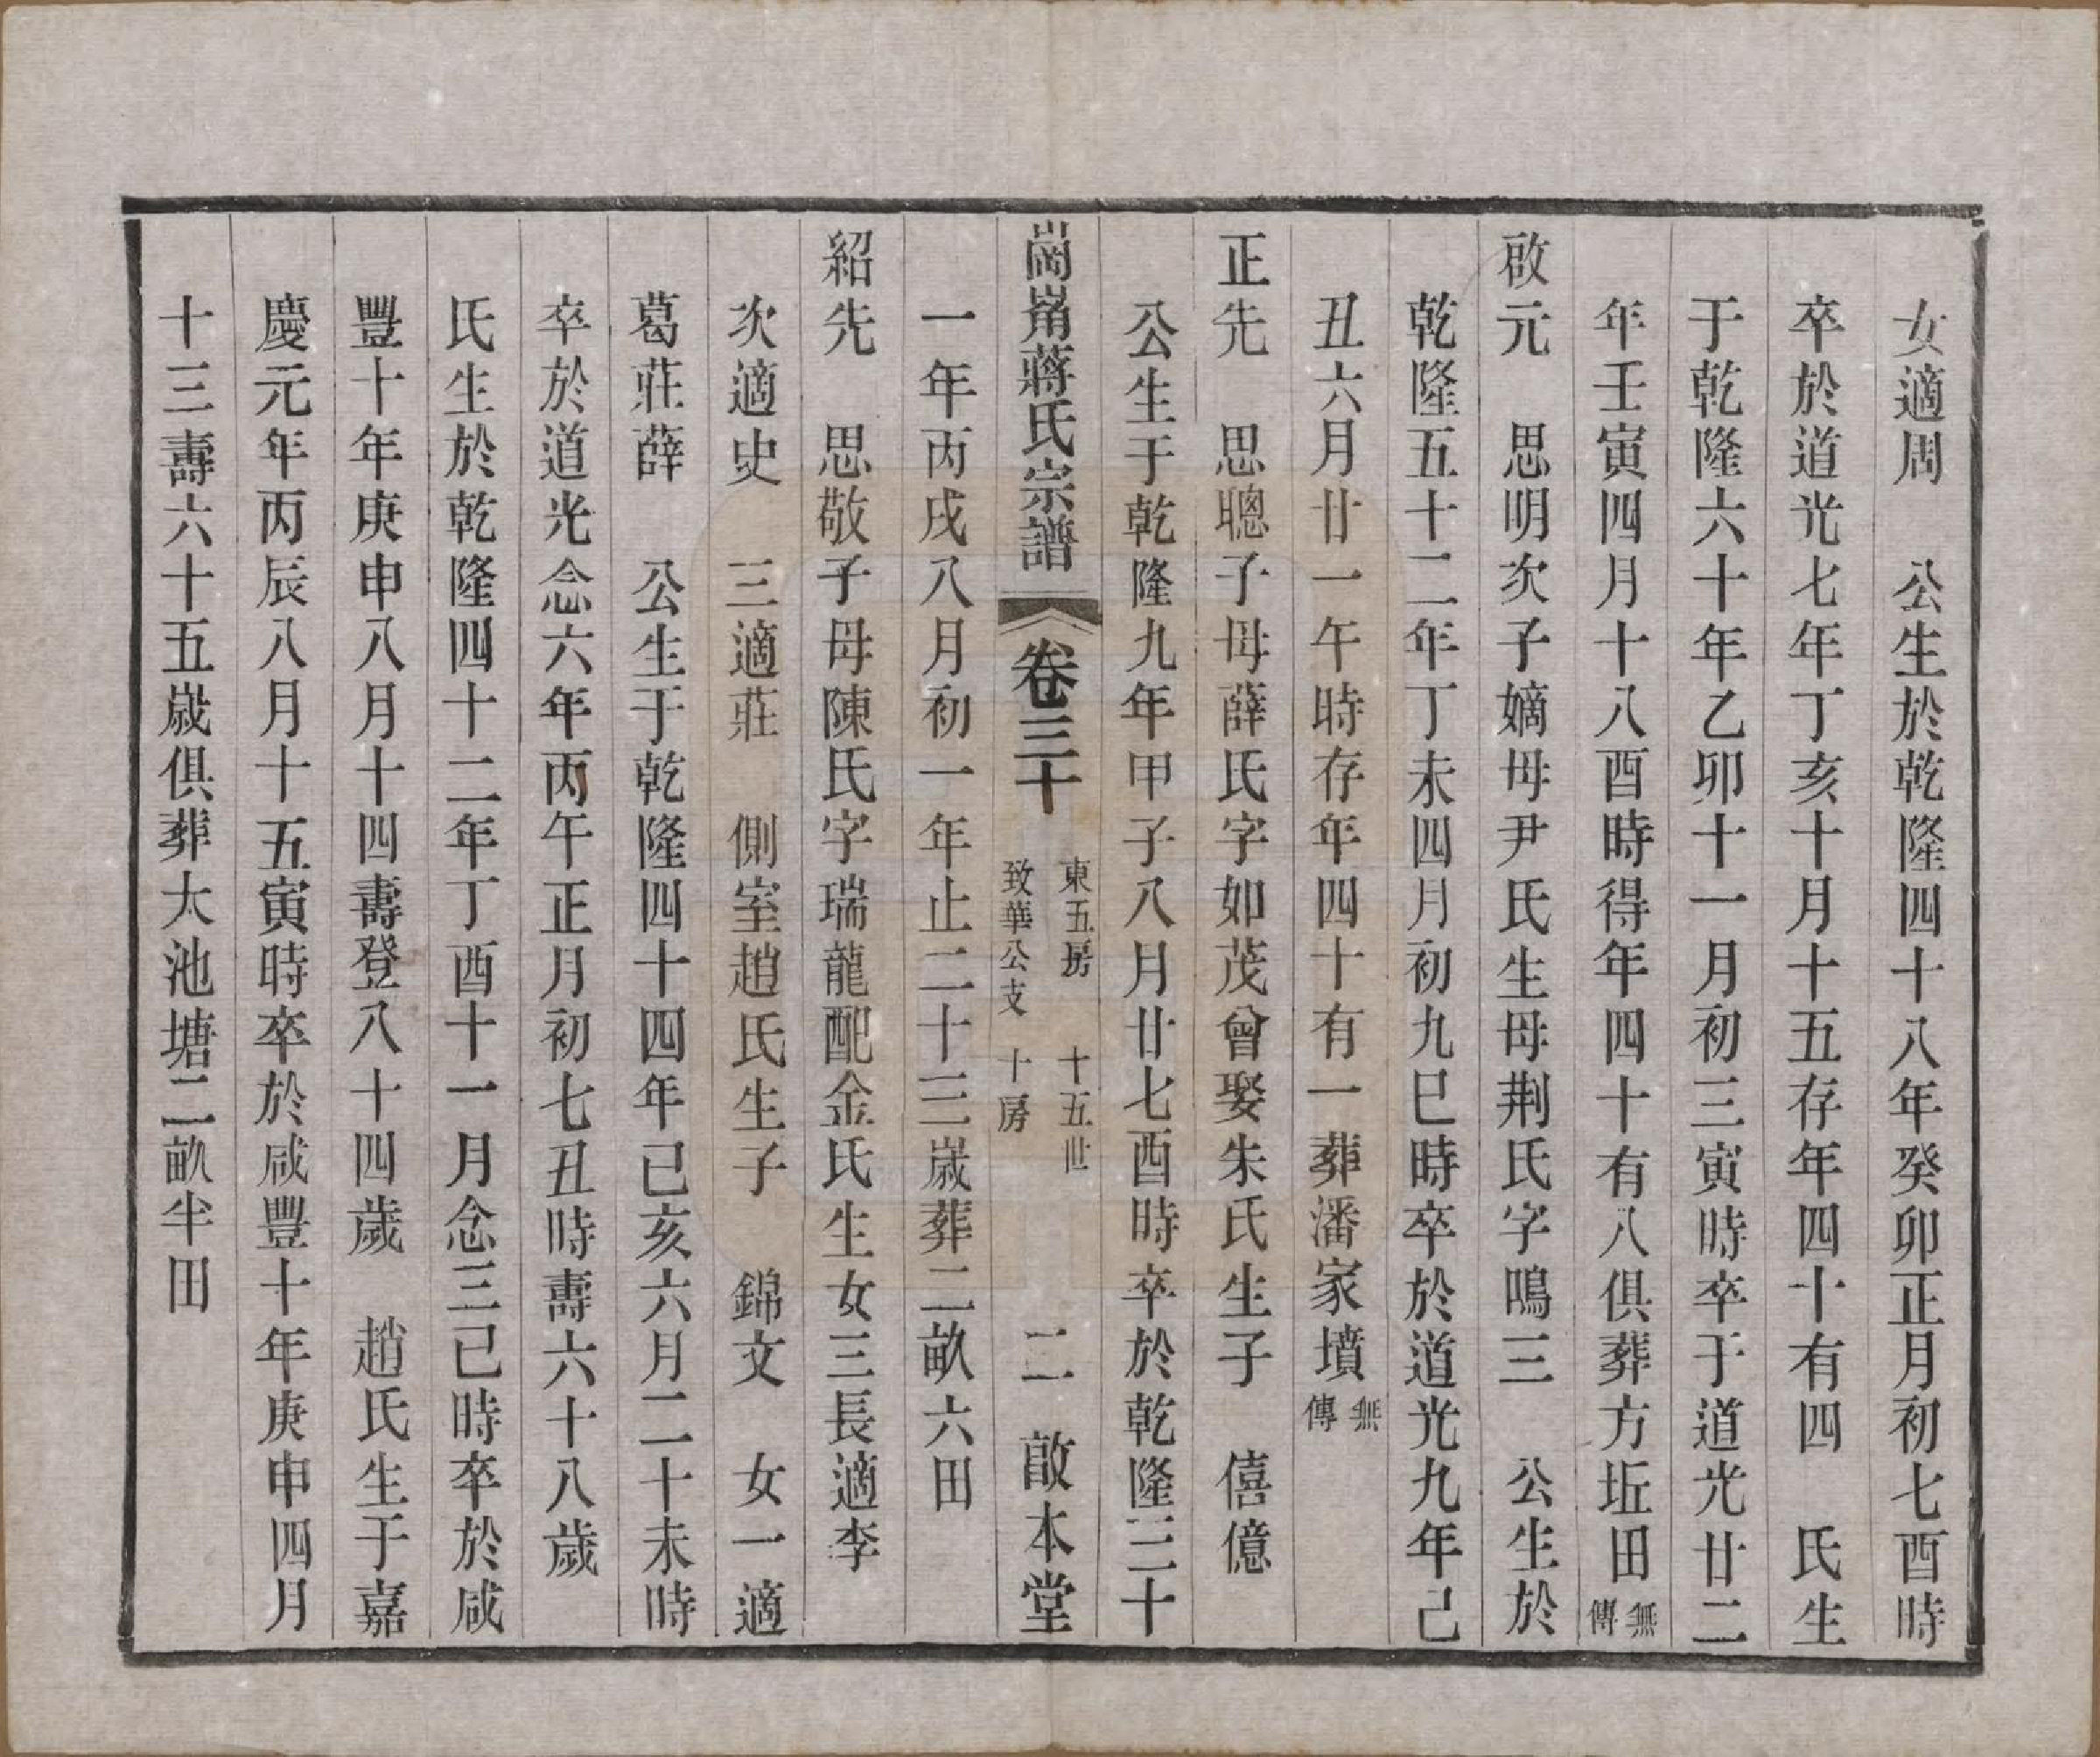 女適周　公生於乾隆四十八年癸卯正月初七酉時
卒於道光七年丁亥十月十五存年四十有四　氏生
于乾隆六十年乙卯十一月初三寅時卒于道光廿二
年壬寅四月十八酉時得年四十有八俱葬方坵田無傳
啟元　思明次子嫡母尹氏生母荆氏字鳴三　公生於
乾隆五十二年丁未四月初九巳時卒於道光九年己
丑六月廿一午時存年四十有一葬潘家墳無傳
正先　思聰子母薛氏字如茂曾娶朱氏生子　僖億
公生于乾隆九年甲子八月廿七酉時卒於乾隆三十
崗㟵蔣氏宗譜　卷三十　東五房　十五世　致華公支　十房　二　啟本堂
一年丙戌八月初一年止二十三嵗葬二畝六田
紹先　思敬子母陳氏字瑞龍配金氏生女三長適李
次適史　三適莊　側室趙氏生子　錦文　女一適
葛莊薛　公生于乾隆四十四年己亥六月二十未時
卒於道光念六年丙午正月初七丑時壽六十八歲
氏生於乾隆四十二年丁酉十一月念三巳時卒於咸
豐十年庚申八月十四壽登八十四歲　趙氏生于嘉
慶元年丙辰八月十五寅時卒於咸豐十年庚申四月
十三壽六十五嵗俱葬大池塘二畝半田